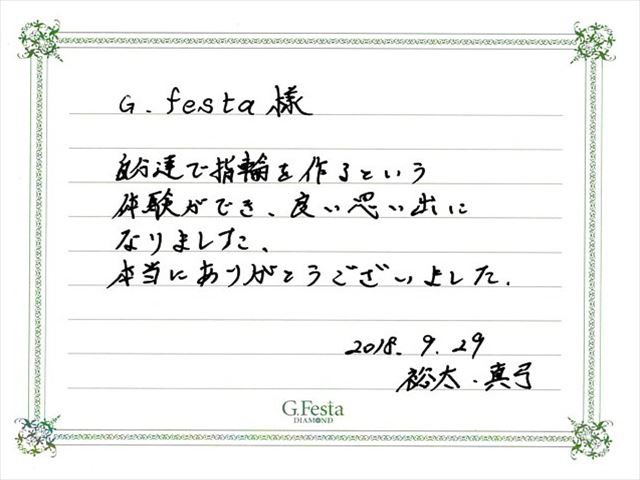 G.festa様
自分達で指輪を作るという
体験ができ、良い思い出に
なりました、
本当にありがとうございました.
2018.9.29
裕太・真弓
G.Festa
DIAMOND